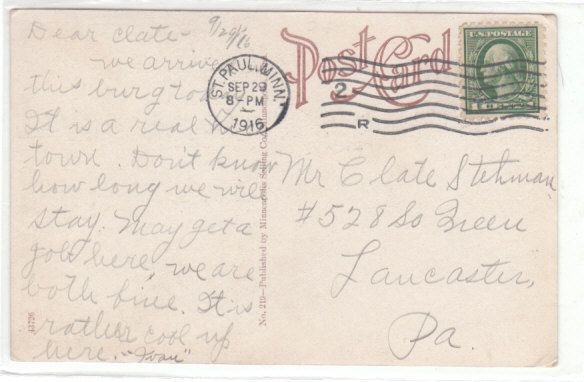 9/29/16
Dear Clate -
we arrive
this burg to
It is a real
town. Don't know
how long we will
stay. May get a
job here, we are
both fine. It is
rather cool up
here. "Ivan"
Post Card
ST. PAUL, MINN.
SEP 29
8-PM
1916
2
R
U.S. POSTAGE
Mr Clate Stehman
#528 So Green
Lancaster,
Pa.
No. 219—Published by Minneapolis Selling Co.